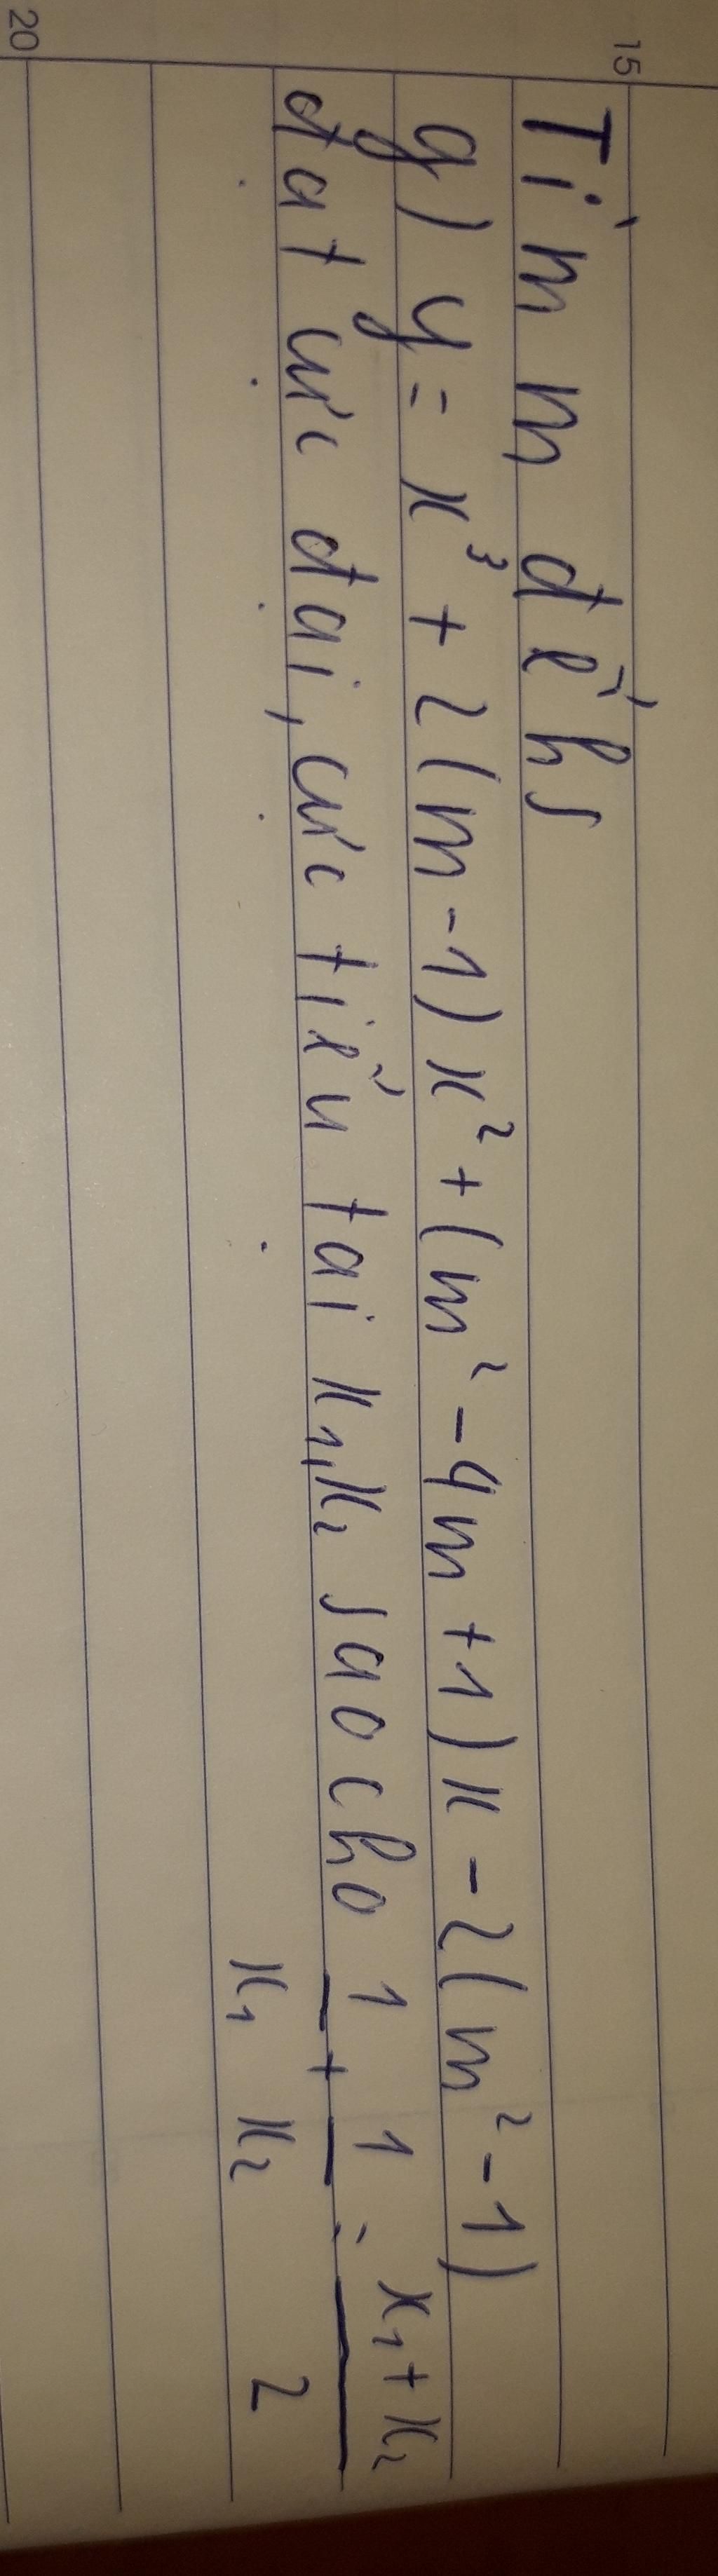 15
Tìm m để hs
g) y = x³ + 2(m-1)x² + (m² - 4m + 1)x - 2(m² - 1)
đạt cực đại, cực tiểu tại x₁, x₂ sao cho 1/x₁ + 1/x₂ = (x₁ + x₂)/2
20